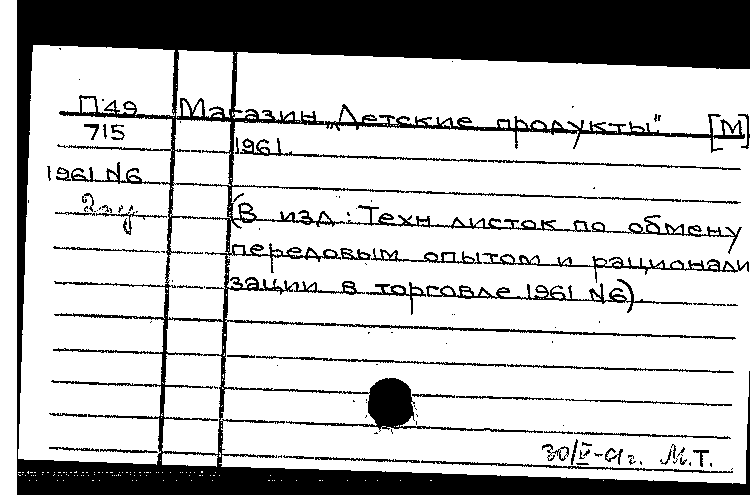 П49 Магазин „Детские продукты" [М]
715 1961.
1961 №6
2 эк.
(В изд: Техн листок по обмену
передовым опытом и рационали
зации в торговле 1961 №6)
30/V-61г. М.Т.